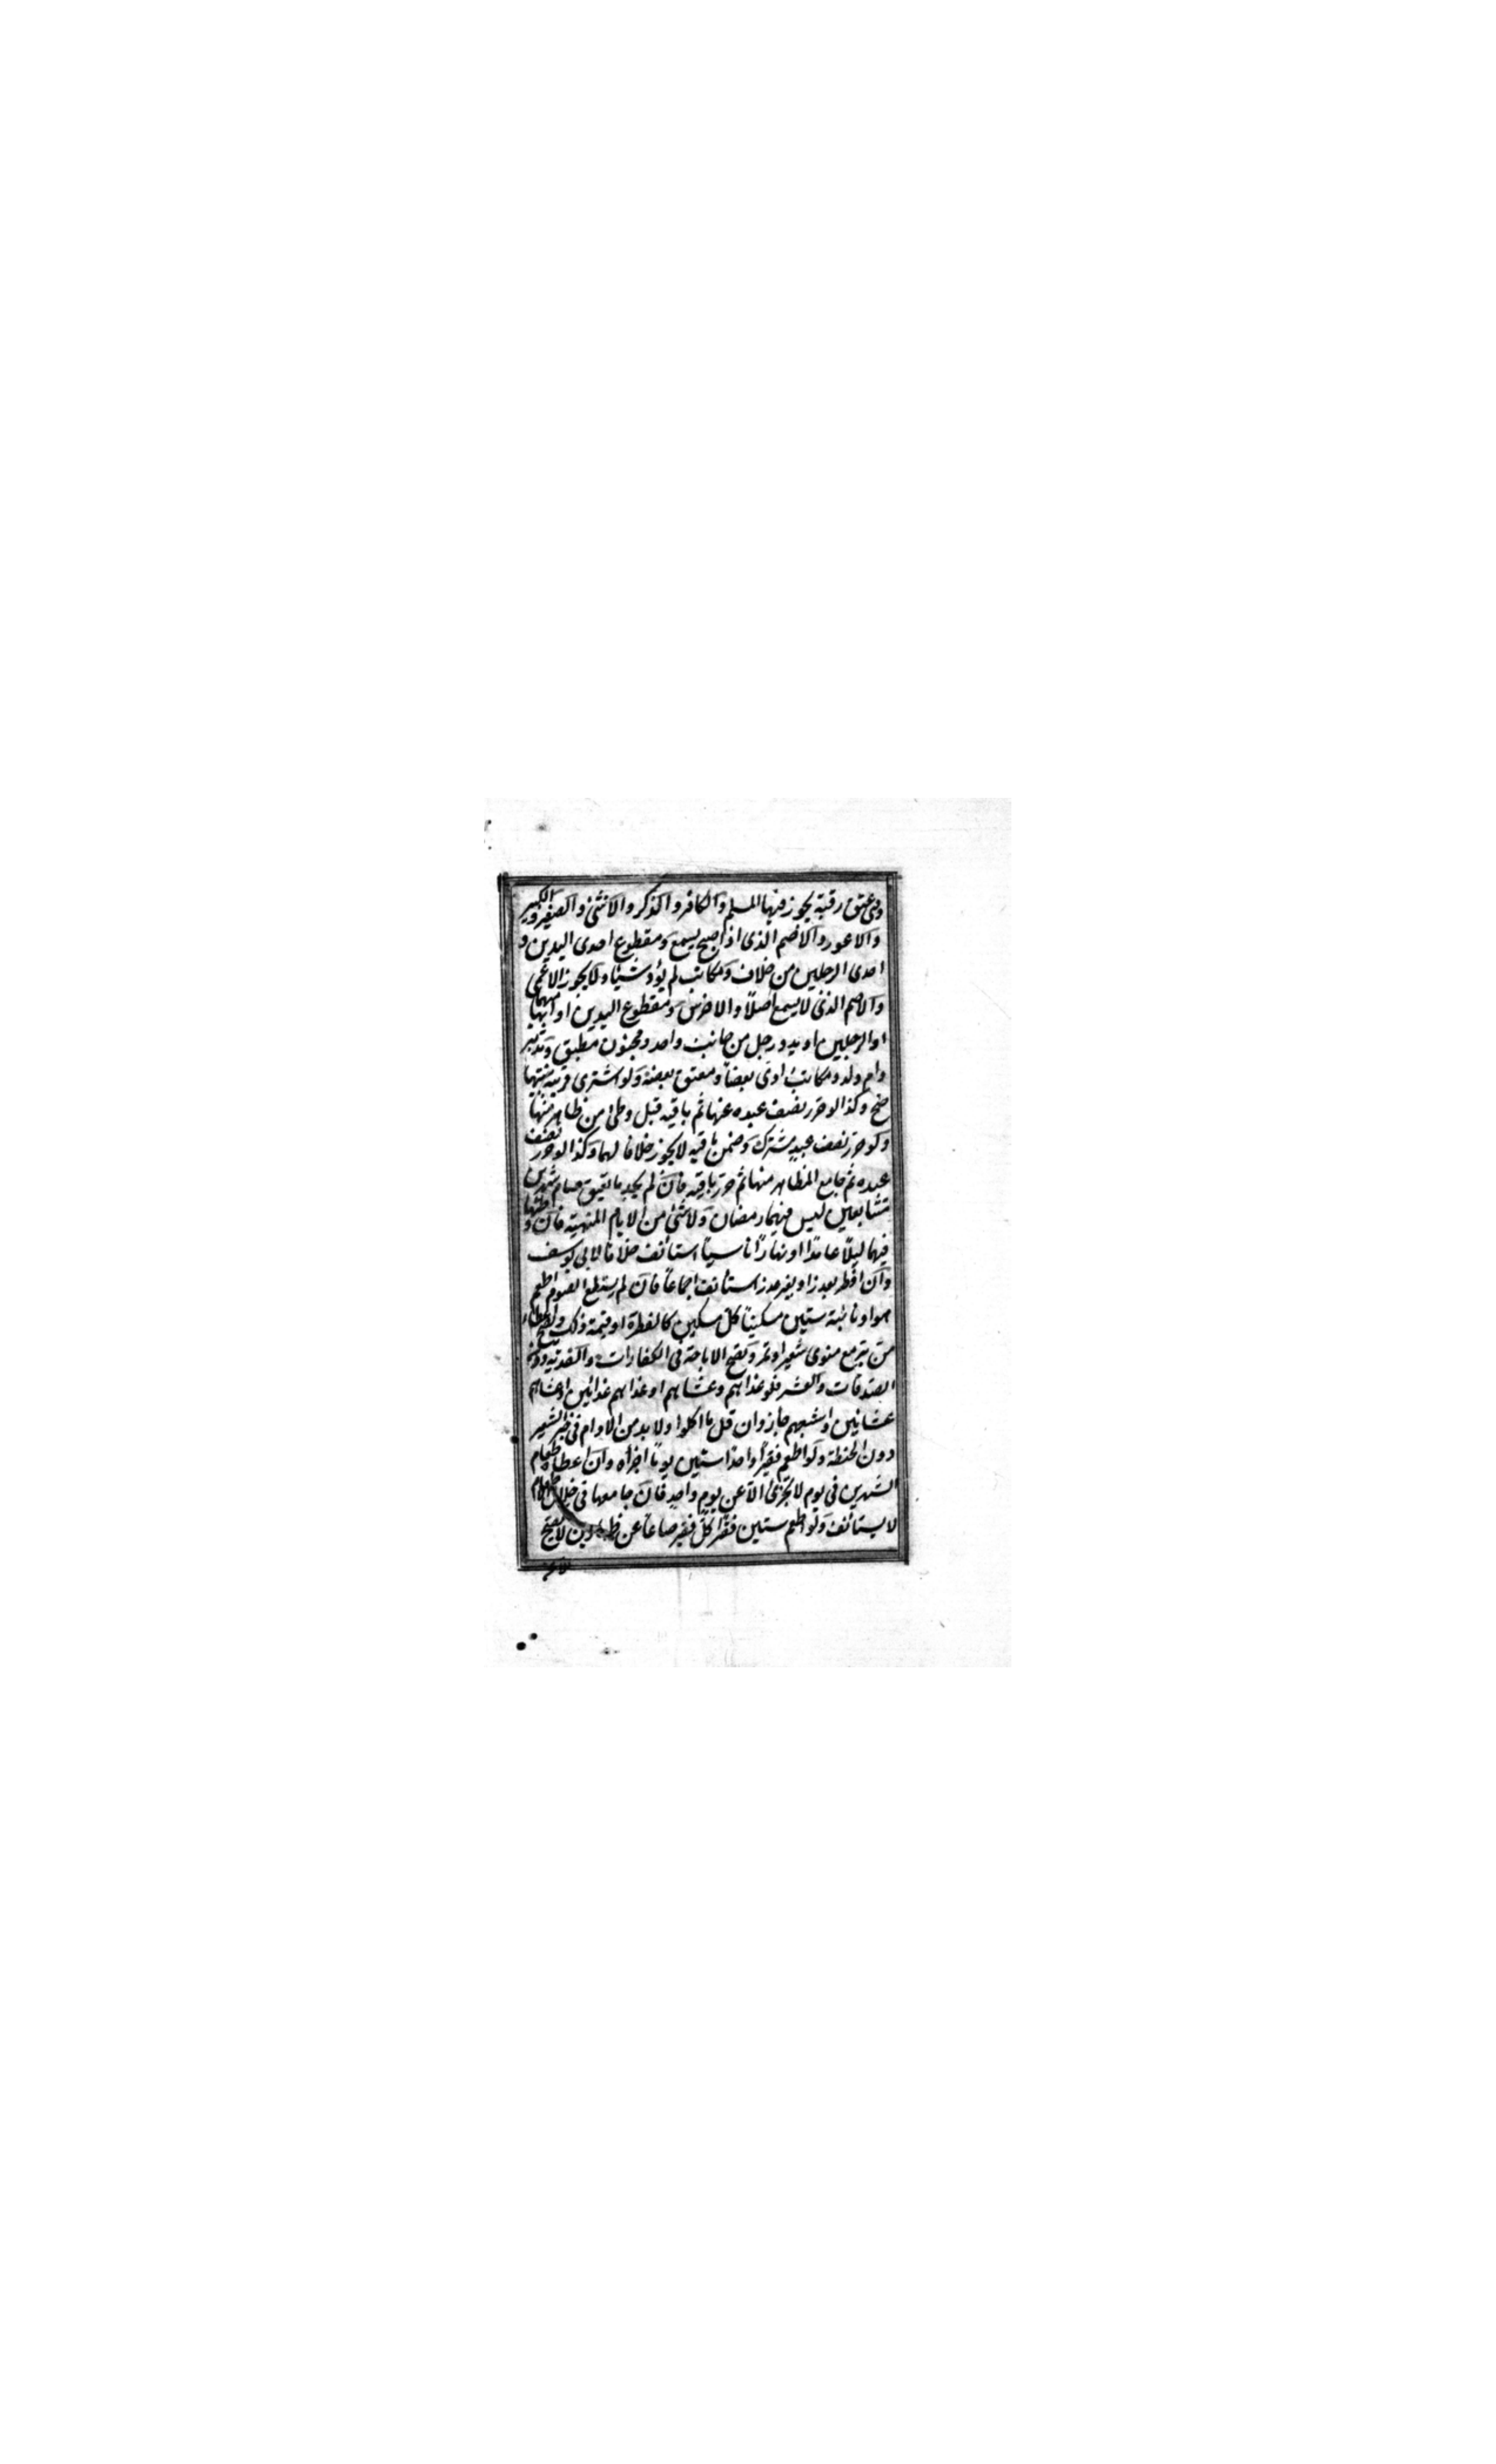 وهى عتق رقبة يجوز فيها المسلم والكافر والذكر والانثى والصغير والكبير
والاعور والاصم الذى اذا صيح يسمع ومقطوع احدى اليدين و
احدى الرجلين من خلاف ومكاتب لم يؤد شيئا ولا يجوز الاعمى
والاصم الذى لا يسمع اصلا والاخرس ومقطوع اليدين او ابهاميهما
او الرجلين او يد ورجل من جانب واحد ومجنون مطبق ومدبر
وام ولد ومكاتب ادى بعضا ومعتق بعضه ولو اشترى قريبه بنيتها
صح وكذا لو حرر نصف عبده عنها ثم باقيه قبل وطئ من ظاهر منها
ولو حرر نصف عبد مشترك وضمن باقيه لا يجوز خلافا لهما وكذا لو حرر نصف
عبده ثم جامع المظاهر منها ثم حرر باقيه فان لم يجد ما يعتق صام شهرين
متتابعين ليس فيهما رمضان ولا شئ من الايام المنهية فان وطئها
فيهما ليلا عامدا او نهارا ناسيا استأنف خلافا لابى يوسف
وان افطر بعذر او بغير عذر استأنف اجماعا فان لم يستطع الصوم اطعم
هو او نائبه ستين مسكينا كل مسكين كالفطرة او قيمة ذلك ويصح اعطاء
من بر مع منوى شعير او تمر وتصح الاباحة فى الكفارات والفدية دون
الصدقات والعشر فلو غداهم وعشاهم او غداهم غدائين او عشاهم
عشائين واشبعهم جاز وان قل ما اكلوا ولا بد من الادام فى خبز الشعير
دون الحنطة ولو اطعم فقيرا واحدا ستين يوما اجزأه وان اعطاه طعام
الشهرين فى يوم لا يجزئ الا عن يوم واحد فان جامعها فى خلال الاطعام
لا يستأنف ولو اطعم ستين فقيرا كل فقير صاعا عن ظهارين لا يصح